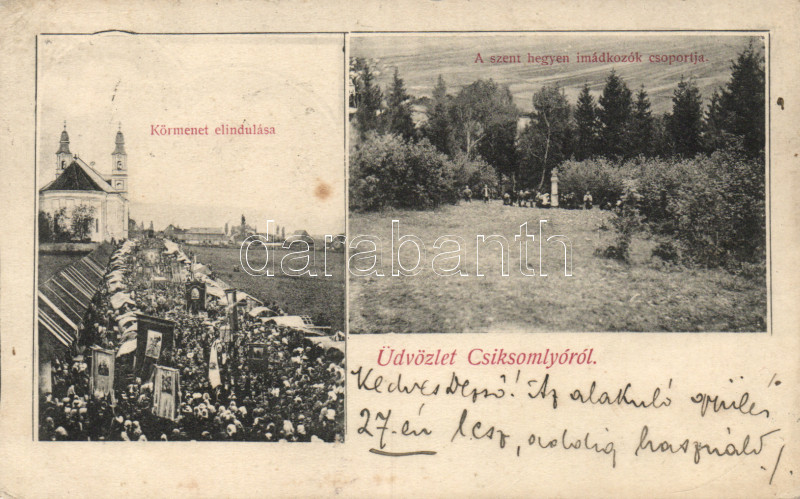 A szent hegyen imádkozók csoportja.
Körmenet elindulása
darabanth
Üdvözlet Csiksomlyóról.
Kedves Dezső! Az alakuló gyülés
27-én lesz, addig használd